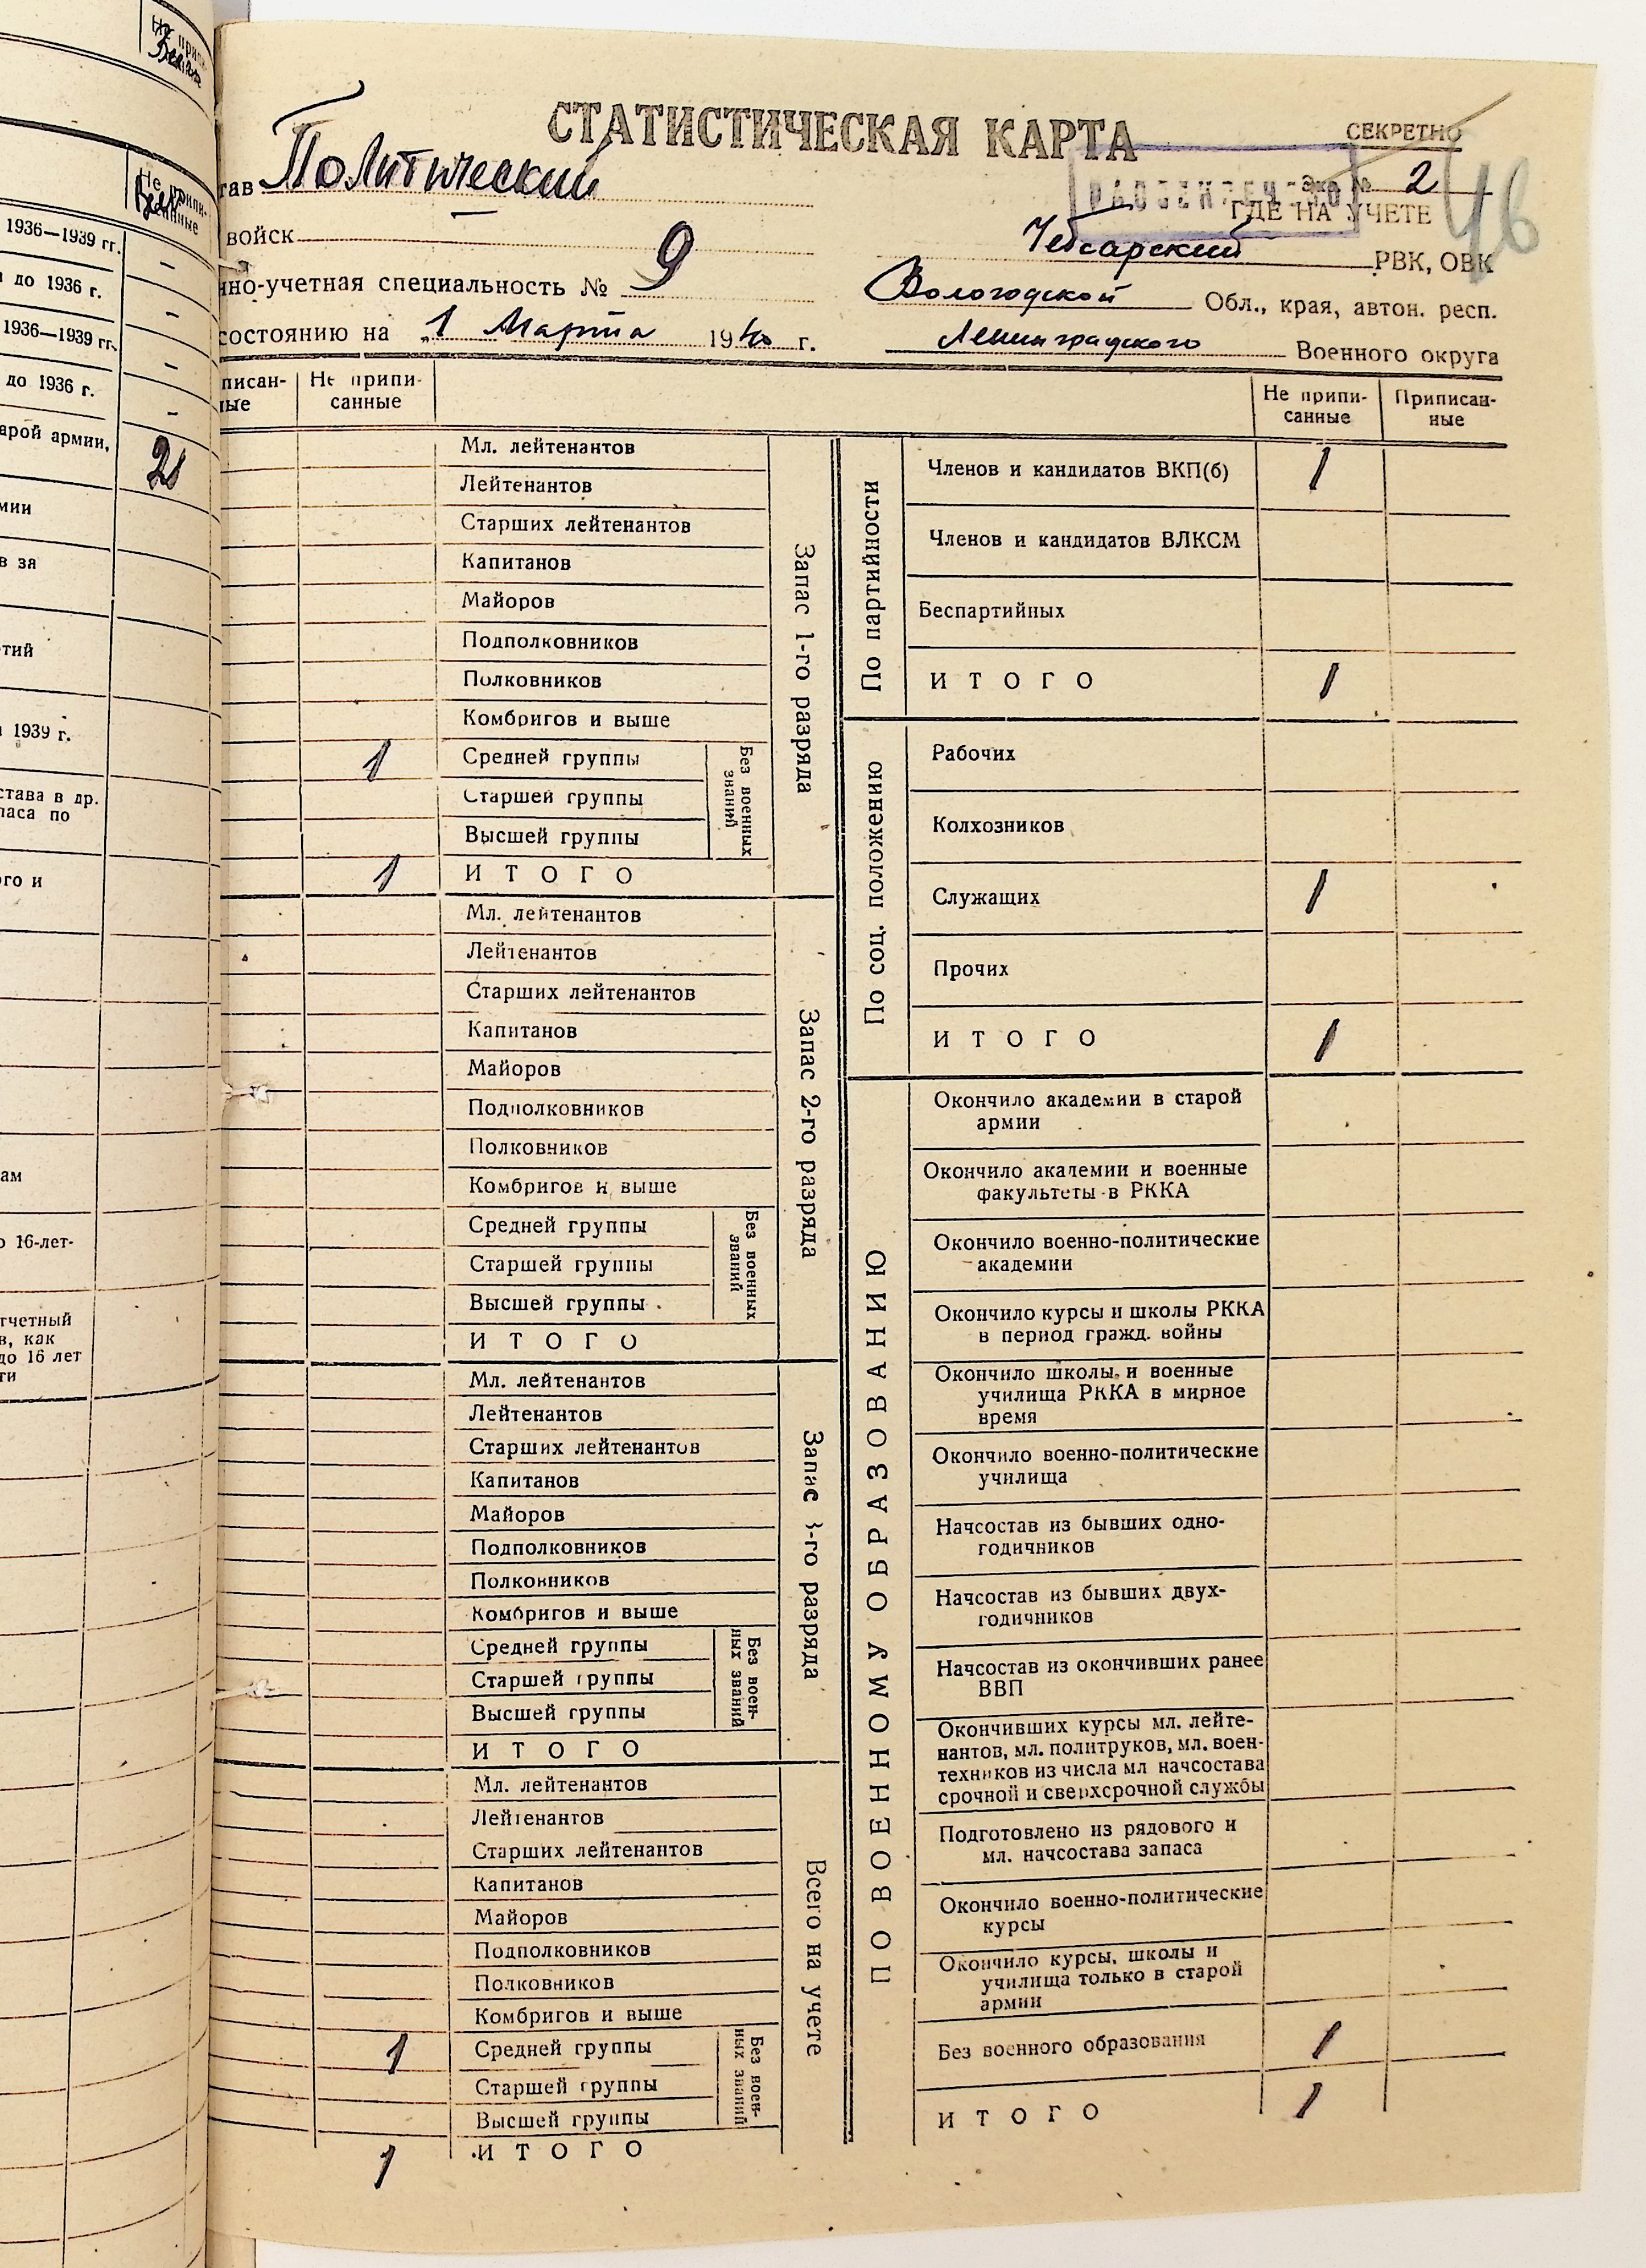 СТАТИСТИЧЕСКАЯ КАРТА
СЕКРЕТНО
Экз. № 2
РАССЕКРЕЧЕНО
46
тав Политический
войск —
нно-учетная специальность № 9
состоянию на „1 Марта 1940 г.
ГДЕ НА УЧЕТЕ
Чебсарский РВК, ОВК
Вологодской Обл., края, автон. респ.
Ленинградского Военного округа
писан-
ные
Не приписанные
Мл. лейтенантов
Лейтенантов
Старших лейтенантов
Капитанов
Майоров
Подполковников
Полковников
Комбригов и выше
1 Средней группы
Старшей группы
Высшей группы
Без военных званий
1 ИТОГО
Запас 1-го разряда
Мл. лейтенантов
Лейтенантов
Старших лейтенантов
Капитанов
Майоров
Подполковников
Полковников
Комбригов и выше
Средней группы
Старшей группы
Высшей группы
Без военных званий
ИТОГО
Запас 2-го разряда
Мл. лейтенантов
Лейтенантов
Старших лейтенантов
Капитанов
Майоров
Подполковников
Полковников
Комбригов и выше
Средней группы
Старшей группы
Высшей группы
Без воен-
ных званий
ИТОГО
Запас 3-го разряда
Мл. лейтенантов
Лейтенантов
Старших лейтенантов
Капитанов
Майоров
Подполковников
Полковников
Комбригов и выше
1 Средней группы
Старшей группы
Высшей группы
Без воен-
ных званий
1 ИТОГО
Всего на учете
Не припи-
санные
Приписан-
ные
По партийности
Членов и кандидатов ВКП(б) 1
Членов и кандидатов ВЛКСМ
Беспартийных
ИТОГО 1
По соц. положению
Рабочих
Колхозников
Служащих 1
Прочих
ИТОГО 1
ПО ВОЕННОМУ ОБРАЗОВАНИЮ
Окончило академии в старой
армии
Окончило академии и военные
факультеты в РККА
Окончило военно-политические
академии
Окончило курсы и школы РККА
в период гражд. войны
Окончило школы и военные
училища РККА в мирное
время
Окончило военно-политические
училища
Начсостав из бывших одно-
годичников
Начсостав из бывших двух-
годичников
Начсостав из окончивших ранее
ВВП
Окончивших курсы мл. лейте-
нантов, мл. политруков, мл. воен-
техников из числа мл начсостава
срочной и сверхсрочной службы
Подготовлено из рядового и
мл. начсостава запаса
Окончило военно-политические
курсы
Окончило курсы, школы и
училища только в старой
армии
Без военного образования 1
ИТОГО 1
1936—1939 гг. —
до 1936 г. —
1936—1939 гг. —
до 1936 г. —
арой армии, 2
мии
в за
тий
1939 г.
става в др.
паса по
ого и
ам
о 16-лет-
тчетный
в, как
до 16 лет
ти